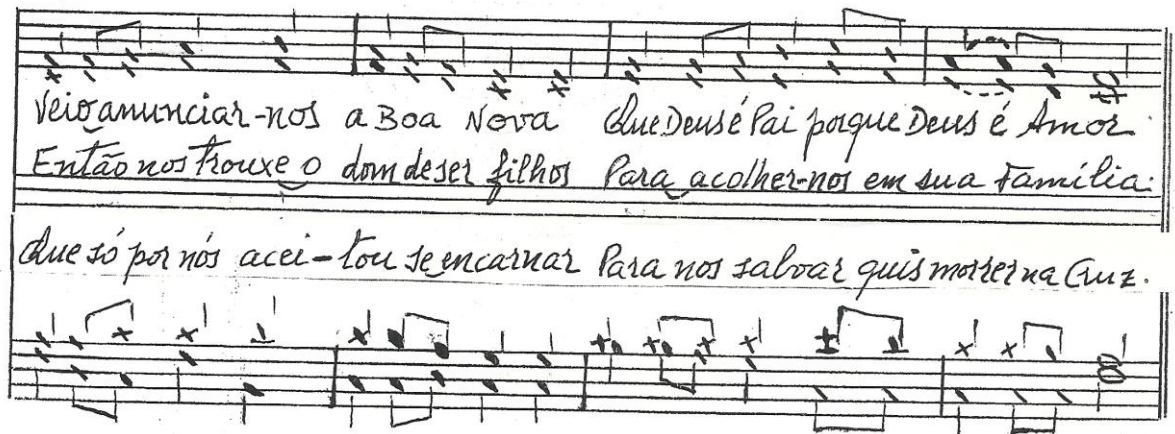 Veio anunciar-nos a Boa Nova Que Deus é Pai porque Deus é Amor.
Então nos trouxe o dom de ser filhos Para acolher-nos em sua Família.
Que só por nós acei-tou se encarnar Para nos salvar quis morrer na Cruz.